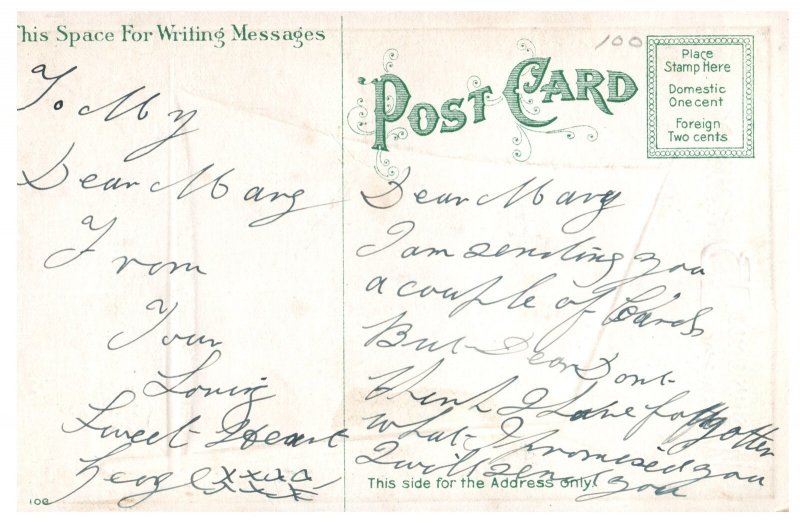 This Space For Writing Messages
To My
Dear Mary
From
Your
Loving
Sweet Heart
xxxx
xxxx
10c
100
POST CARD
Place
Stamp Here
Domestic
One cent
Foreign
Two cents
Dear Mary
I am sending you
a couple of Cards
But Dear Dont
think I have forgotten
what I promised you
I will send you
This side for the Address only.